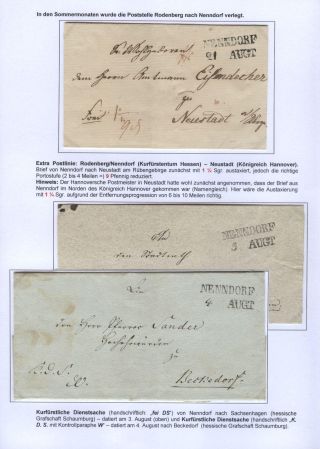 In den Sommermonaten wurde die Poststelle Rodenberg nach Nenndorf verlegt.
NENNDORF
21 AUGT
dem Herrn Amtmann
zu
Neustadt
Extra Postlinie: Rodenberg/Nenndorf (Kurfürstentum Hessen) – Neustadt (Königreich Hannover).
Brief von Nenndorf nach Neustadt am Rübengebirge zunächst mit 1 ¼ Sgr. austaxiert, jedoch die richtige
Portostufe (2 bis 4 Meilen =) 9 Pfennig reduziert.
Hinweis: Der Hannoversche Postmeister in Neustadt hatte wohl zunächst angenommen, dass der Brief aus
Nenndorf im Norden des Königreich Hannover gekommen war (Namengleich). Hier wäre die Austaxierung
mit 1 ¼ Sgr. aufgrund der Entfernungsprogression von 6 bis 10 Meilen richtig.
NENNDORF
3 AUGT
NENNDORF
4 AUGT
den Herrn Pfarrer Sander
zu
K. D. S.
Beckedorf
Kurfürstliche Dienstsache (handschriftlich: „fei DS") von Nenndorf nach Sachsenhagen (hessische
Grafschaft Schaumburg) – datiert am 3. August (oben) und Kurfürstliche Dienstsache (handschriftlich „K.
D. S. mit Kontrollparaphe W" – datiert am 4. August nach Beckedorf (hessische Grafschaft Schaumburg).